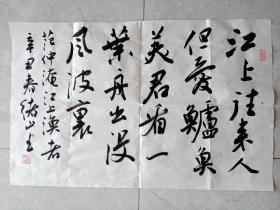 江上往来人
但爱鱸魚
美君看一
葉舟出没
風波裏
范仲淹江上渔者
辛丑春绪山书